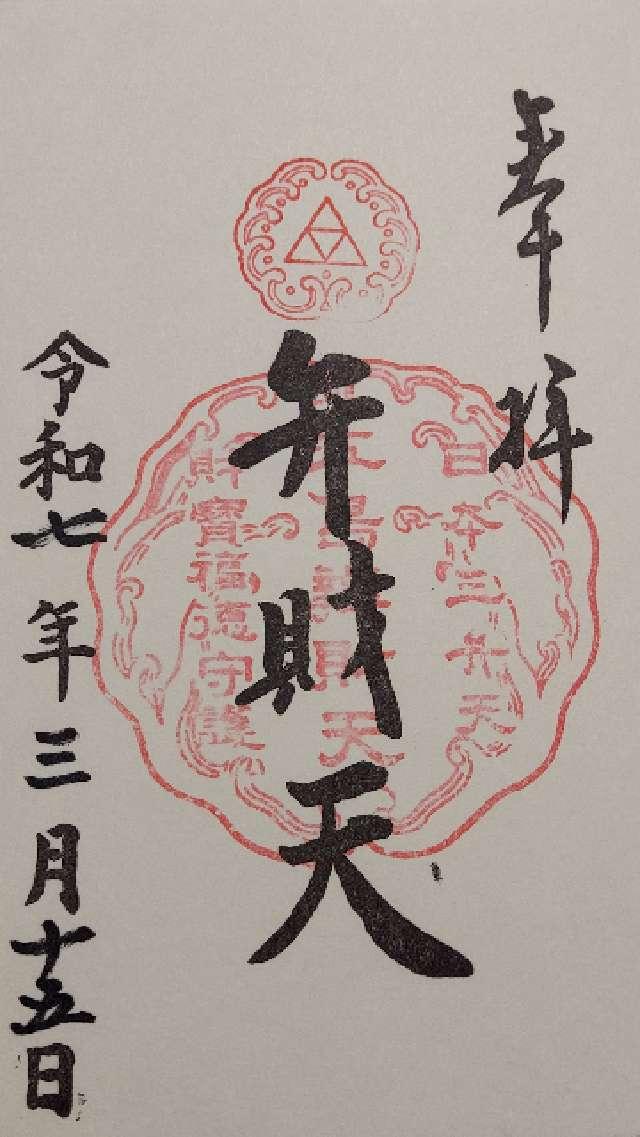 奉拝
日本三弁天
弁財天
財寶福徳守護
令和七年三月十五日